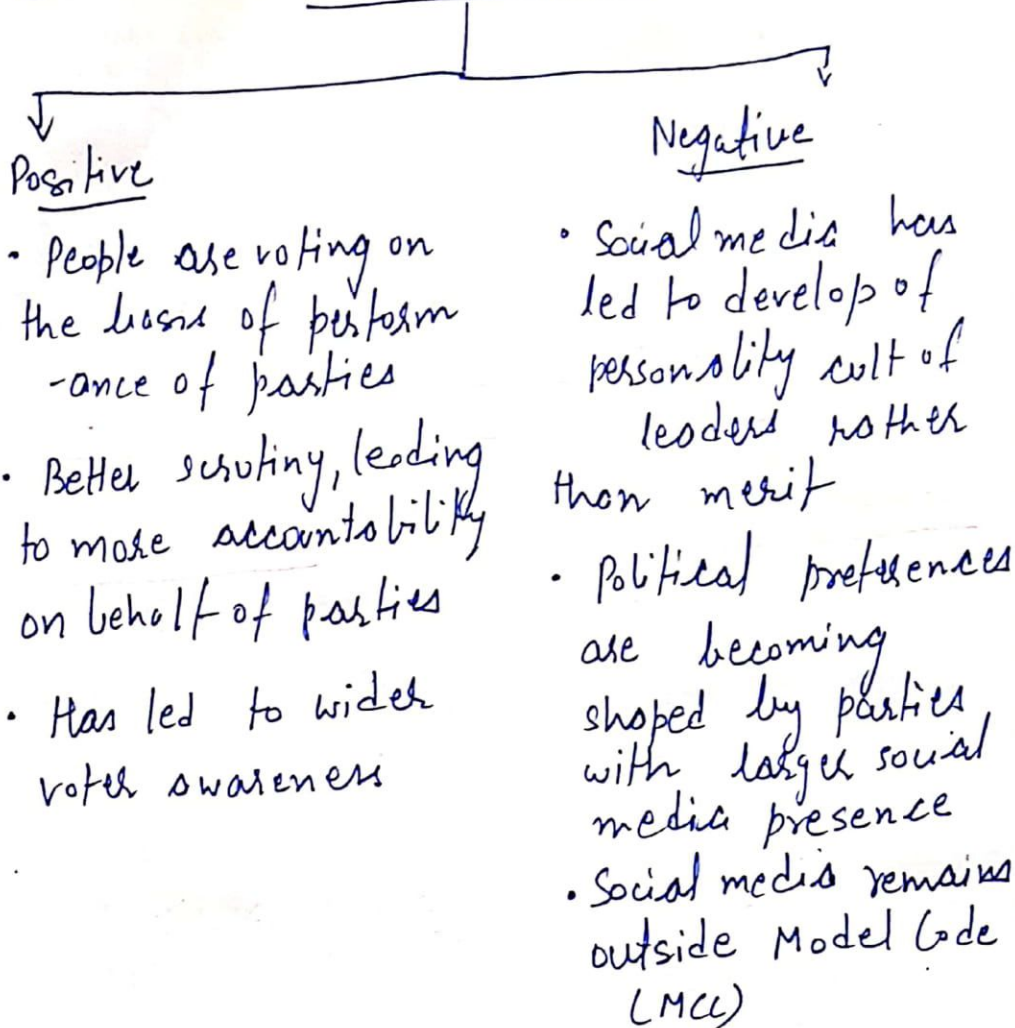 Positive
• People are voting on
the basis of perform
-ance of parties
• Better scrutiny, leading
to more accountability
on behalf of parties
• Has led to wider
voter awareness
Negative
• Social media has
led to develop of
personality cult of
leaders rather
than merit
• Political preferences
are becoming
shaped by parties
with larger social
media presence
• Social media remains
outside Model Code
(MCC)